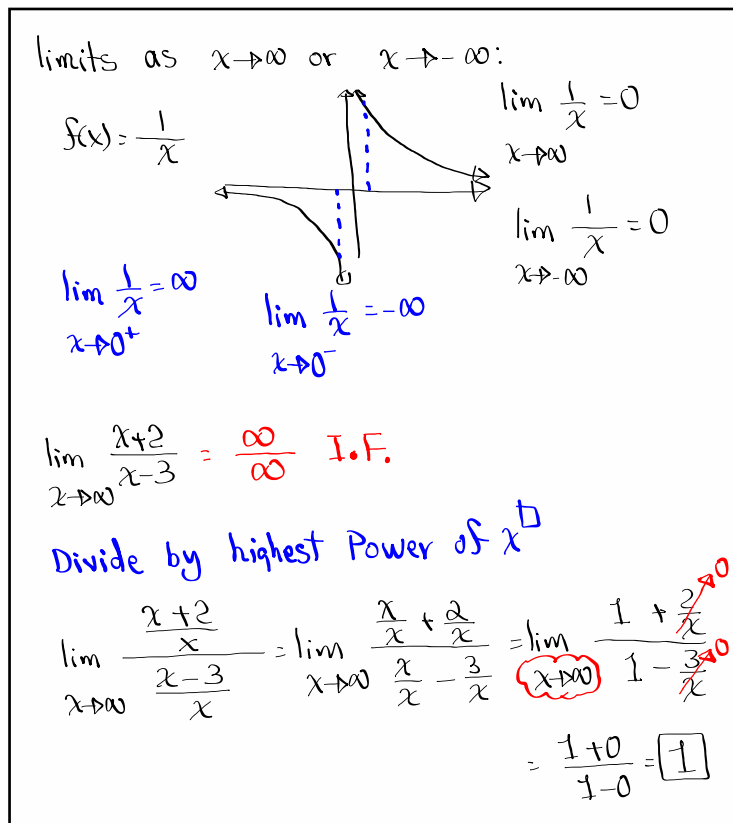 limits as x→∞ or x→-∞:
f(x) = 1/x
lim x→∞ 1/x = 0
lim x→-∞ 1/x = 0
lim x→0⁺ 1/x = ∞
lim x→0⁻ 1/x = -∞
lim x→∞ (x+2)/(x-3) = ∞/∞ I.F.
Divide by highest Power of x^□
lim x→∞ ((x+2)/x)/((x-3)/x) = lim x→∞ (x/x + 2/x)/(x/x - 3/x) = lim x→∞ (1 + 2/x →0)/(1 - 3/x →0)
= (1+0)/(1-0) = 1